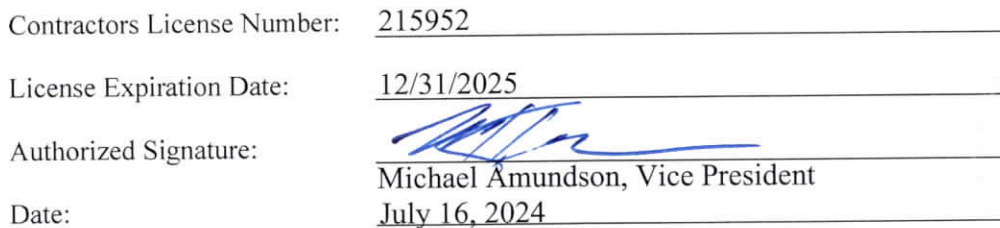 Contractors License Number: 215952
License Expiration Date: 12/31/2025
Authorized Signature:
Michael Amundson, Vice President
Date: July 16, 2024